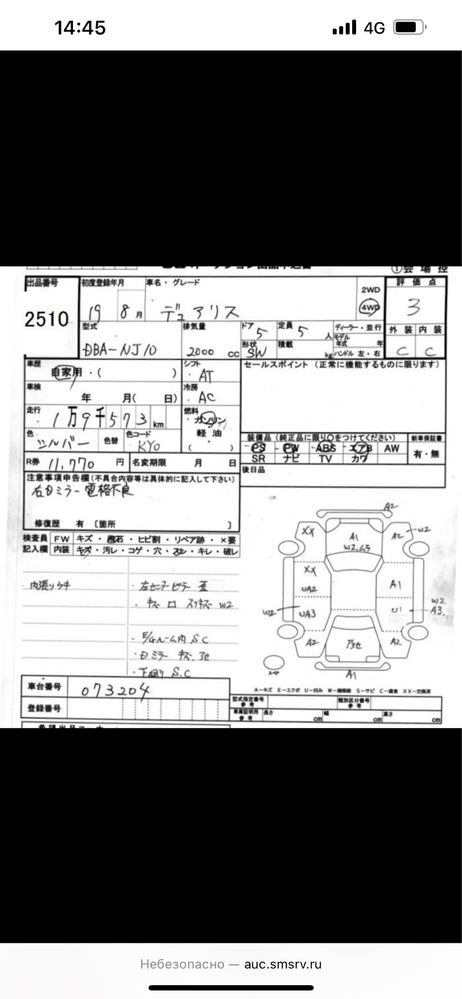 14:45
4G
出品番号
2510
初度登録年月
19 8月
車名・グレード
デュアリス
2WD
4WD
評価点
3
型式
DBA-NJ10
排気量
2000 cc
ドア
5
定員
5 人
形状
SW
積載
kg
ディーラー・並行
モデル年式 年
ハンドル 左・右
外装 内装
C C
車歴
自家用・( )
シフト
AT
セールスポイント (正常に機能するものに限ります)
車検
年 月( 日)
冷房
AC
走行
1万9千573km
燃料
ガソリン
軽油
( )
色
シルバー
色替
色コード
KYO
装備品 (純正品に限り○をつけてください)
新車保証書
PS PW ABS エアB AW
SR ナビ TV カワ
有・無
R券 11,770 円
名変期限 月 日
後日品
注意事項申告欄(不具合内容等は具体的に記入して下さい)
右ミラー電格不良
修復歴 有 〔箇所 〕
検査員記入欄
FW キズ・飛石・ヒビ割・リペア跡・×要
内装 キズ・汚レ・コゲ・穴・スレ・キレ・破レ
内張りキズ
・左センターピラー歪
・E/Gルーム内 S.C
・下廻り S.C
A2
XX
A1
A2
W2
XX
UA2
A1
W2
UA3
U1
W2
A3
A2
A2
A1
車台番号
073204
登録番号
A-キズ E-エクボ U-凹み W-補修跡 S-サビ C-腐食 XX-交換済
型式指定番号
参考
類別区分番号
参考
車庫証明用
参考
長さ cm
幅 cm
高さ cm
Небезопасно — auc.smsrv.ru